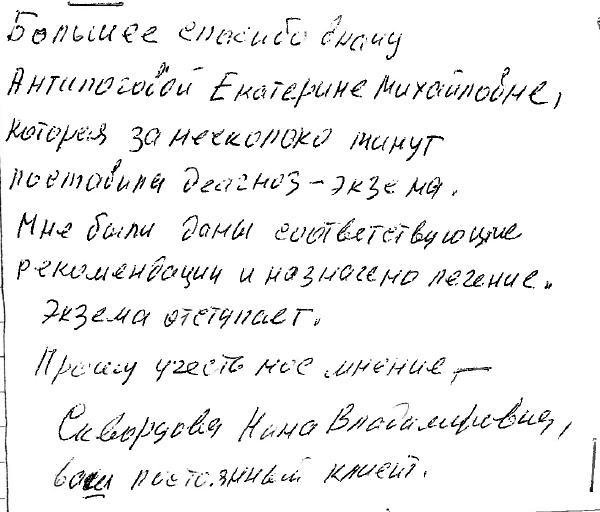 Большее спасибо врачу
Антипоговой Екатерине Михайловне,
которая за несколоко минут
поставила деагноз - экзема.
Мне были даны соответствующие
рекомендации и назначено лечение.
Экзема отступает.
Прошу учесть мое мнение -
Скворцова Нина Владимировна,
ваш постоянный клиент.